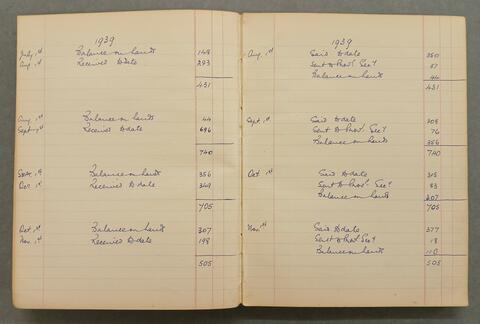 1939
July 1st Balance on hand 158
Aug. 1st Received to date 293
451
Aug. 1st Balance on hand 44
Sept 1st Received to date 696
740
Sept. 1st Balance on hand 356
Oct 1st Received to date 349
705
Oct. 1st Balance on hand 307
Nov. 1st Received to date 198
505
1939
Aug. 1st Sold to date 350
Sent to Provl Secy 57
Balance on hand 44
451
Sept. 1st Sold to date 308
Sent to Provl Secy 76
Balance on hand 356
740
Oct 1st Sold to date 315
Sent to Provl Secy 83
Balance on hand 307
705
Nov. 1st Sold to date 377
Sent to Provl Secy 18
Balance on hand 110
505